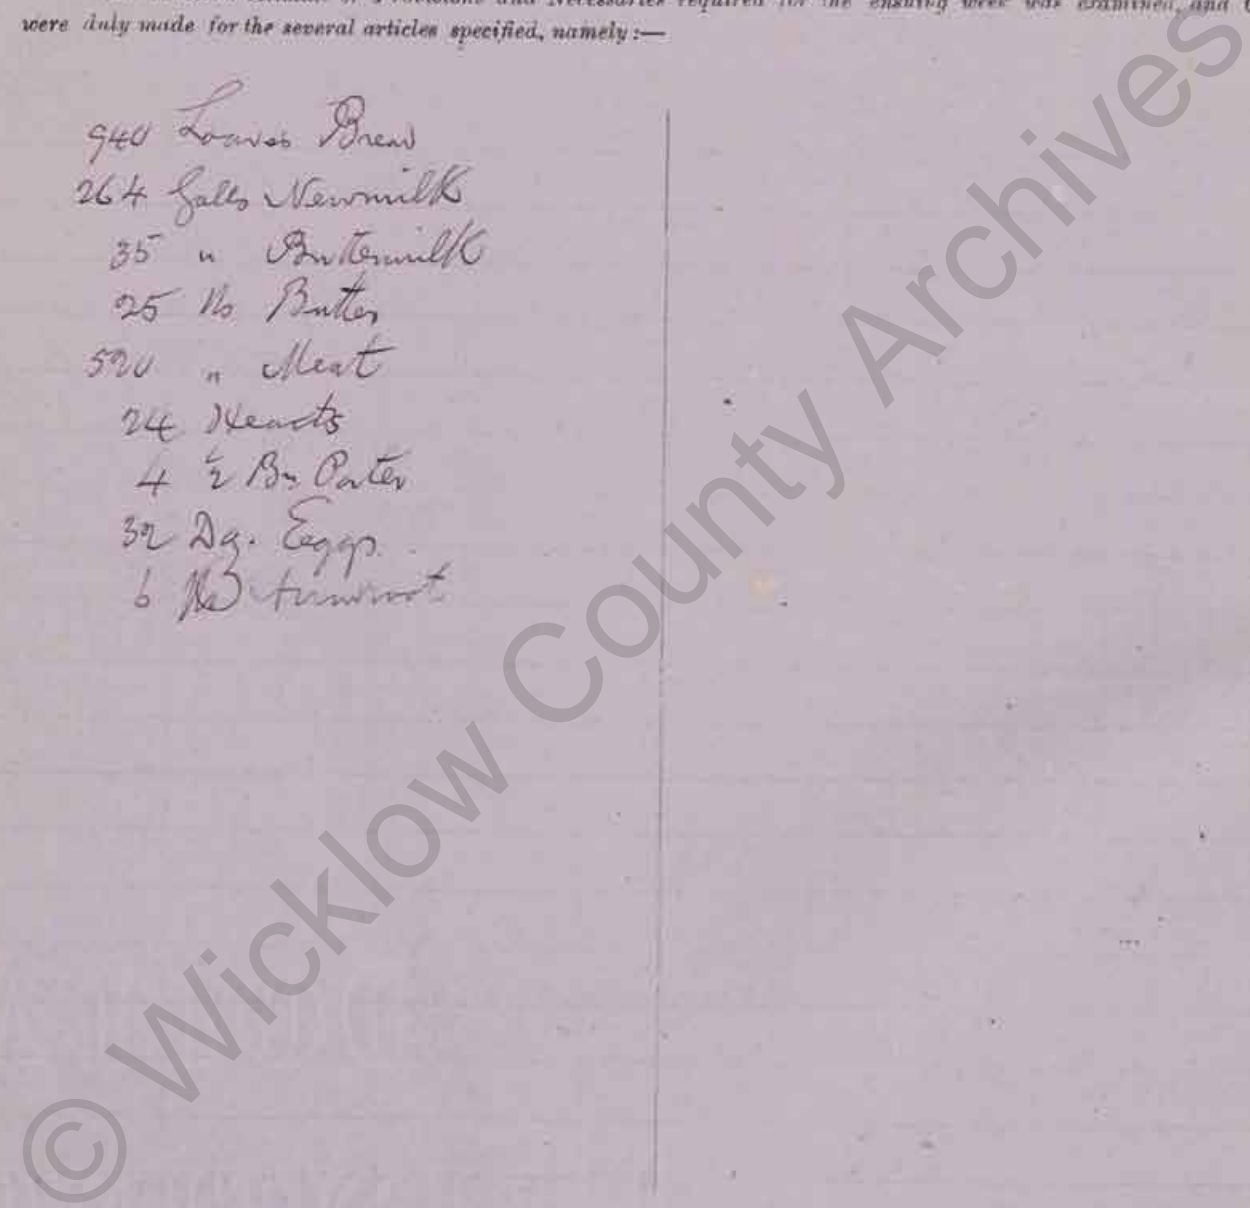 Provisions and Necessaries required for the ensuing week was examined, and
were duly made for the several articles specified, namely :—
940 Loaves Bread
264 Galls Newmilk
35 " Buttermilk
25 lbs Butter
520 " Meat
24 Hearts
4 ½ Br Porter
32 Dz. Eggs
6 Arrowroot
© Wicklow County Archives